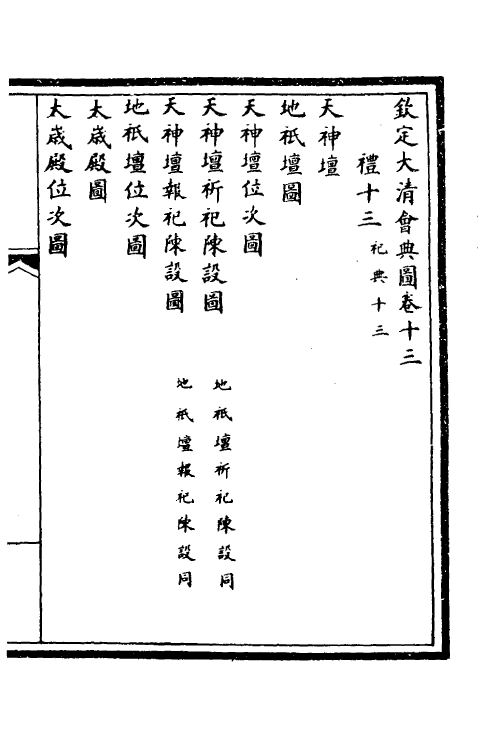 欽定大清會典圖卷十三
禮十三 祀典十三
天神壇
地祇壇圖
天神壇位次圖
天神壇祈祀陳設圖 地祇壇祈祀陳設同
天神壇報祀陳設圖 地祇壇報祀陳設同
地祇壇位次圖
太歲殿圖
太歲殿位次圖